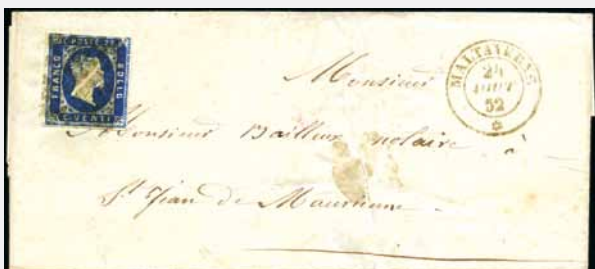 C. POSTE 20
FRANCO
BOLLO
C. VENTI
MALTAVERNE
24
AOUT
52
Monsieur
Monsieur Bailleux notaire à
St Jean de Maurienne